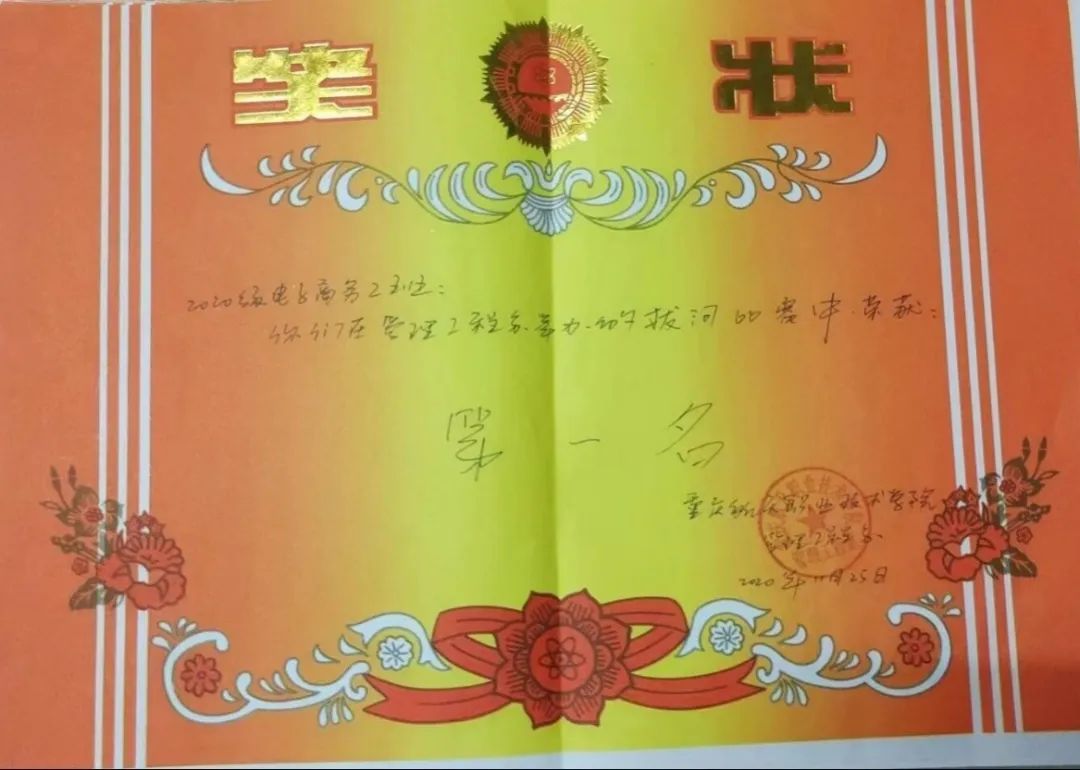 奖状
2020级电子商务2班:
你们在管理工程系举办的拔河比赛中.荣获:
第一名
重庆航天职业技术学院
管理工程系
2020年11月25日